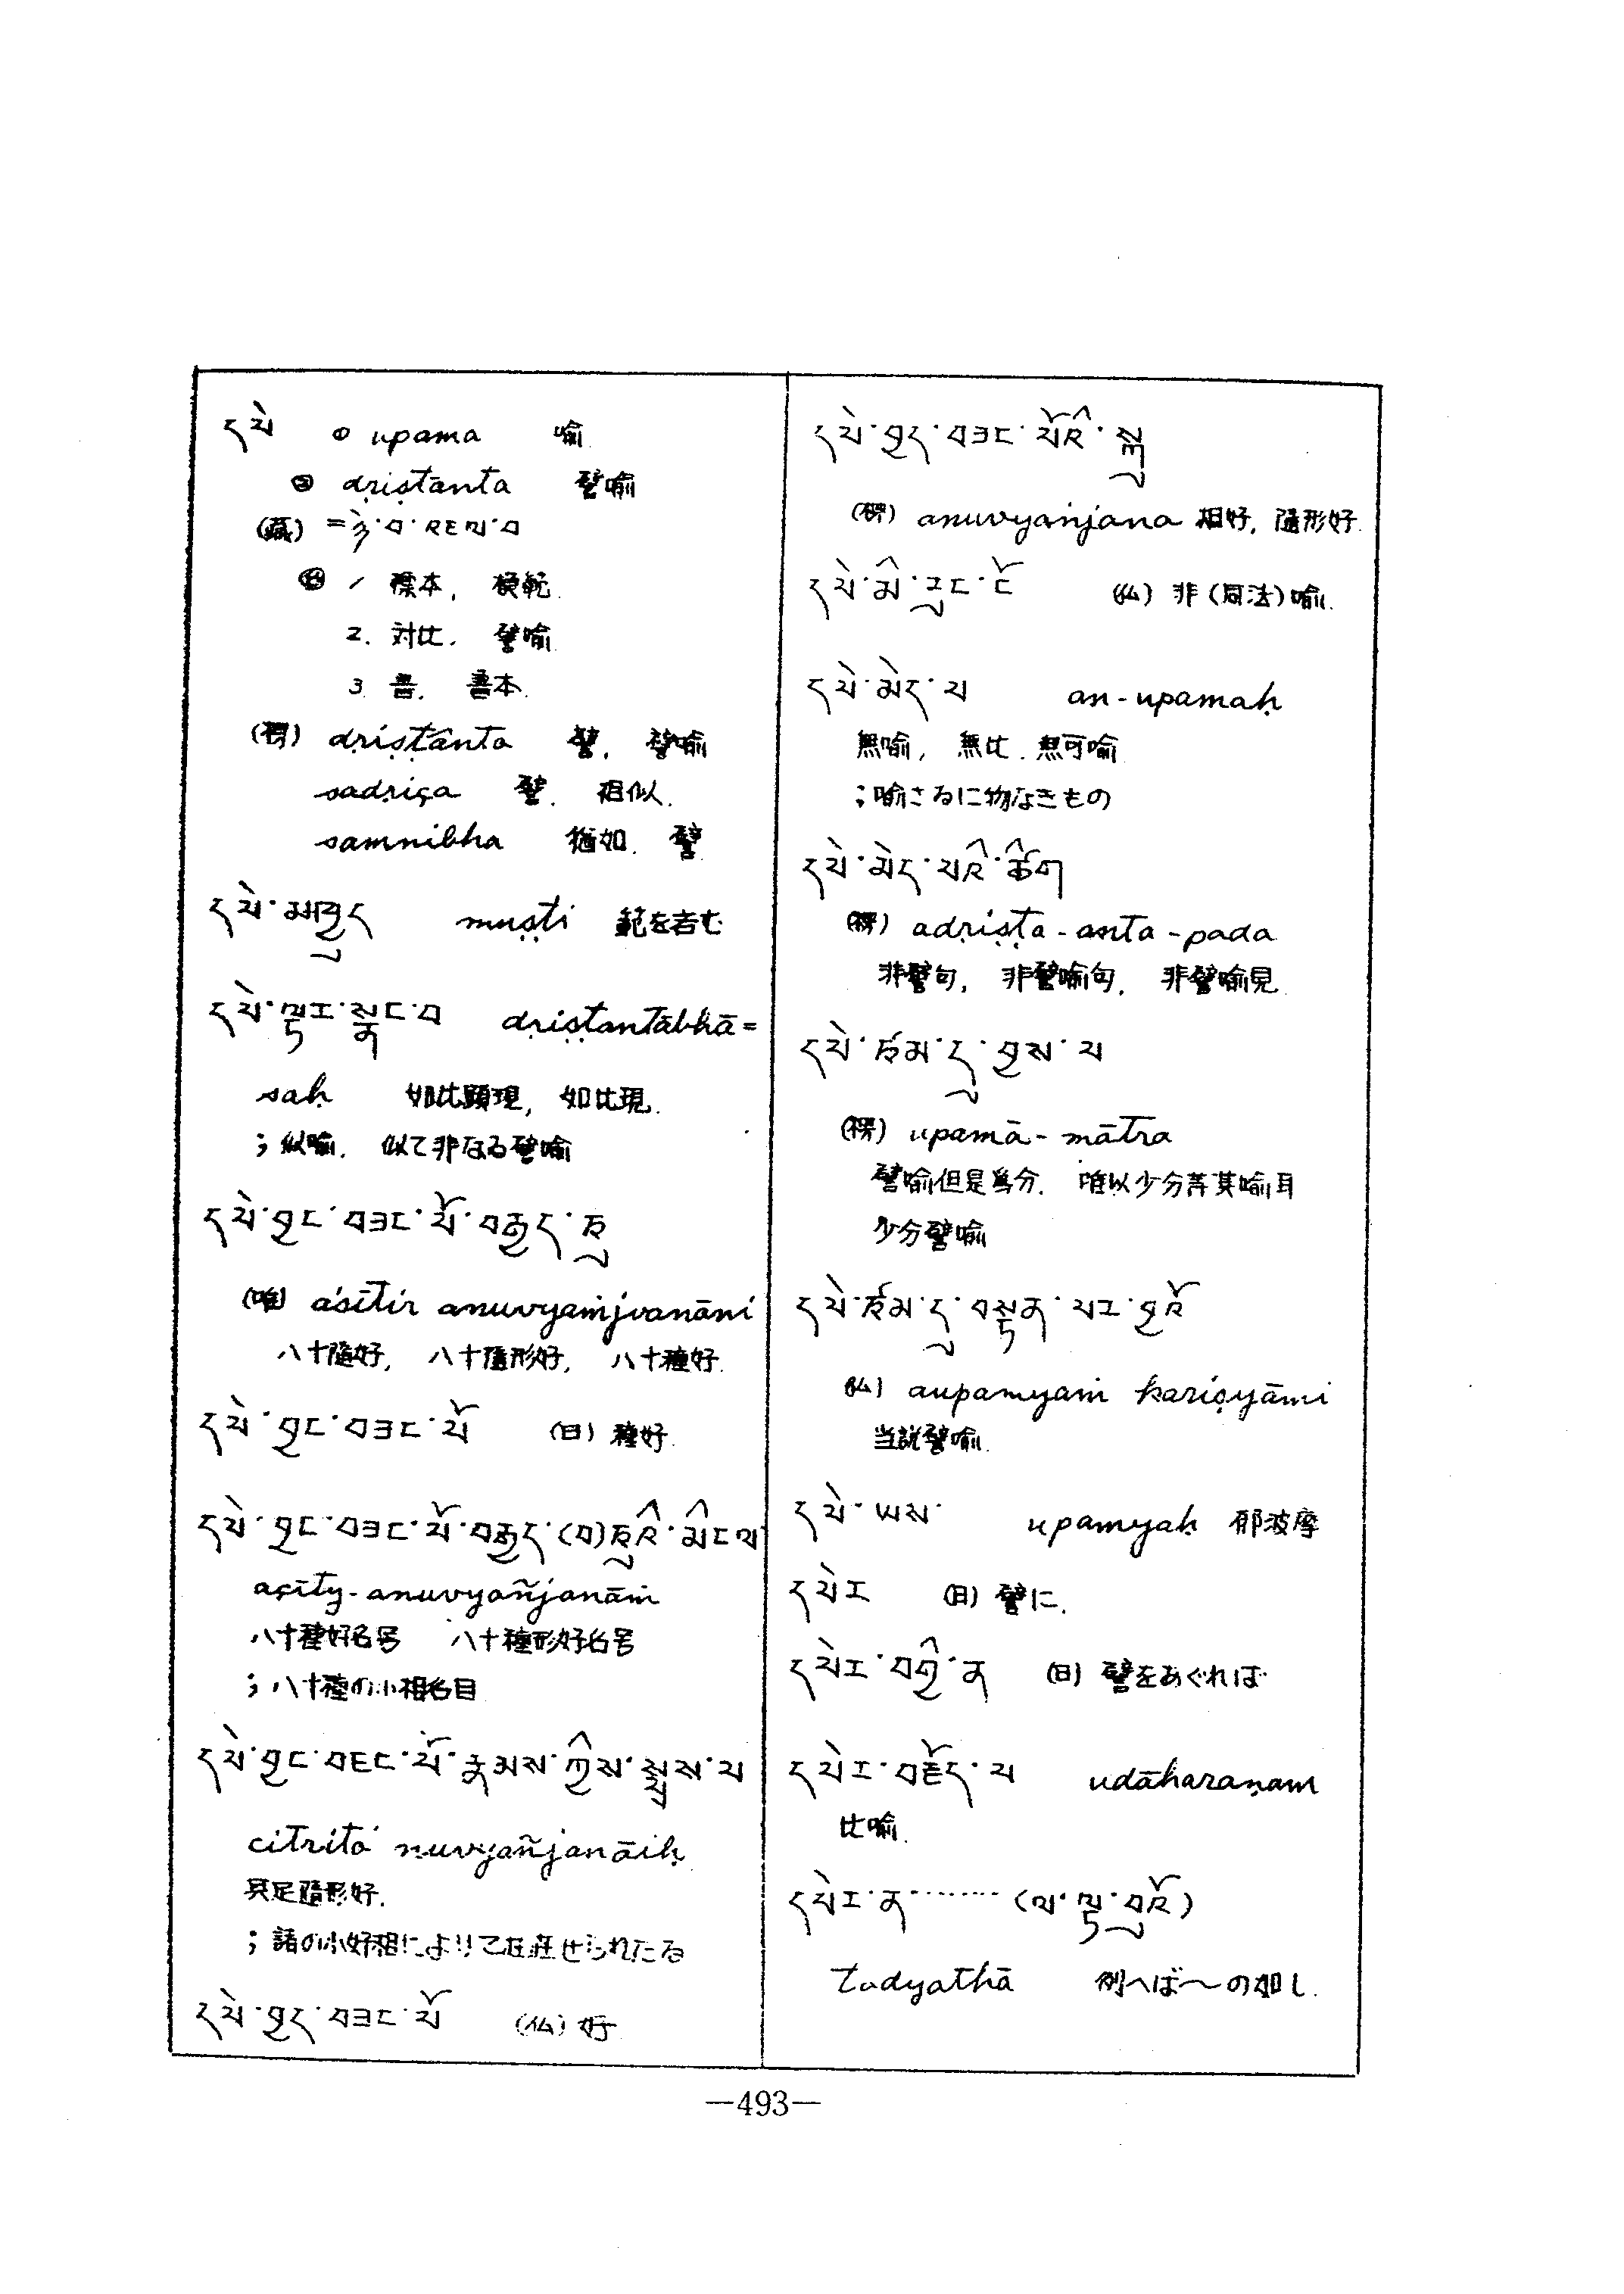 དཔེ ① upama 喩
② dṛiṣṭānta 譬喩
(蔵) =ཉེ་བ་འཇལ་བ
1 標本, 模範
2. 対比. 譬喩
3. 書. 書本.
(楞) dṛiṣṭānta 譬, 譬喩
sadṛiça 譬. 相似.
samnibha 猶如. 譬
དཔེ་མཁྱུད muṣṭi 範を吝む
དཔེ་ལྟར་སྣང་བ dṛiṣṭantābhā=
saḥ 如比顕現, 如比現.
; 似喩. 似て非なる譬喩
དཔེ་བྱང་བཟང་པོ་བརྒྱད་ཅུ
(唯) aśītir anuvyaṁjvanāni
八十随好, 八十随形好, 八十種好.
དཔེ་བྱང་བཟང་པོ (日) 種好.
དཔེ་བྱང་བཟང་པོ་བརྒྱད་(བ)ཅུའི་མིང་ལ
açīty-anuvyañjanāṁ
八十種好名号 八十種形好名号
; 八十種の小相名目
དཔེ་བྱང་བཟང་པོ་རྣམས་ཀྱིས་སྤྲས་པ
citrito' nuvyañjanāiḥ
具足隨形好.
; 諸の小好相によりて荘せられたる
དཔེ་བྱད་བཟང་པོ (仏) 好
དཔེ་བྱད་བཟང་པོའི་སྐུ
(楞) anuvyaṅjana 相好, 隨形好.
དཔེ་མི་སྲུང་ངོ (仏) 非(同法)喩.
དཔེ་མེད་པ an-upamaḥ
無喩, 無比. 無可喩
; 喩さるに物なきもの
དཔེ་མེད་པའི་ཚིག
(楞) adṛiṣṭa-anta-pada
非譬句, 非譬喩句, 非譬喩見
དཔེ་ཙམ་དུ་བྱས་པ
(楞) upamā-mātra
譬喩但是為分. 唯以少分其喩耳
少分譬喩
དཔེ་ཙམ་དུ་བསྟན་པར་བྱའོ
(仏) aupamyaṁ kariṣyāmi
当説譬喩.
དཔེ་ཡས་ upamyaḥ 郁波摩
དཔེར (日) 譬に.
དཔེར་བགྱི་ན (日) 譬をあぐれば
དཔེར་བརྗོད་པ udāharaṇam
比喩.
དཔེར་ན········(ལ་ལྟ་བུའོ)
tadyathā 例へば〜の如し.
—493—